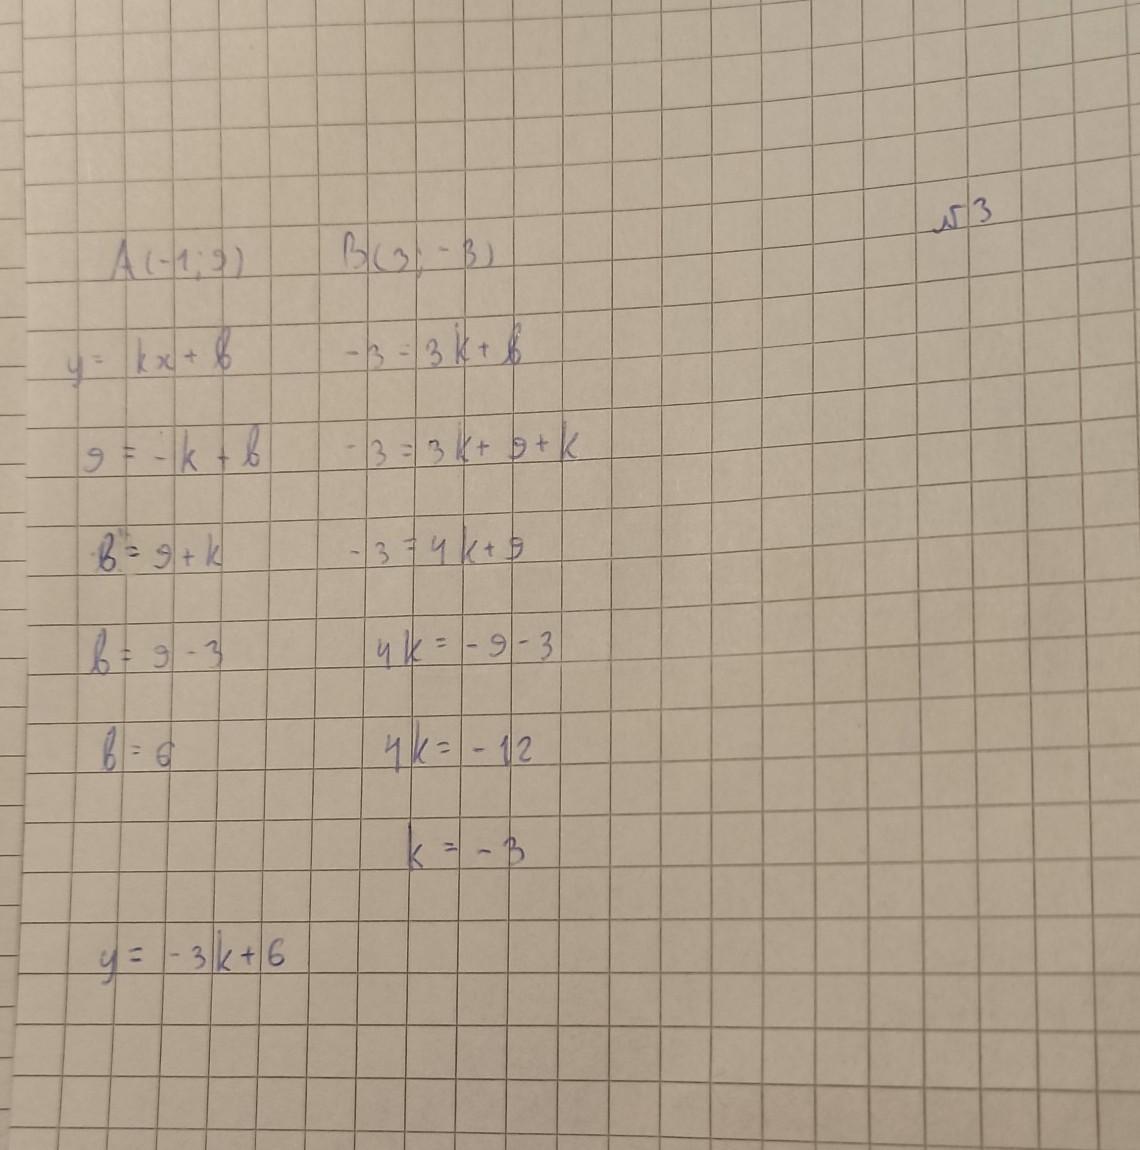 №3
A(-1; 9) B(3; -3)
y = kx + b -3 = 3k + b
9 = -k + b -3 = 3k + 9 + k
b = 9 + k -3 = 4k + 9
b = 9 - 3 4k = -9 - 3
b = 6 4k = -12
k = -3
y = -3k + 6